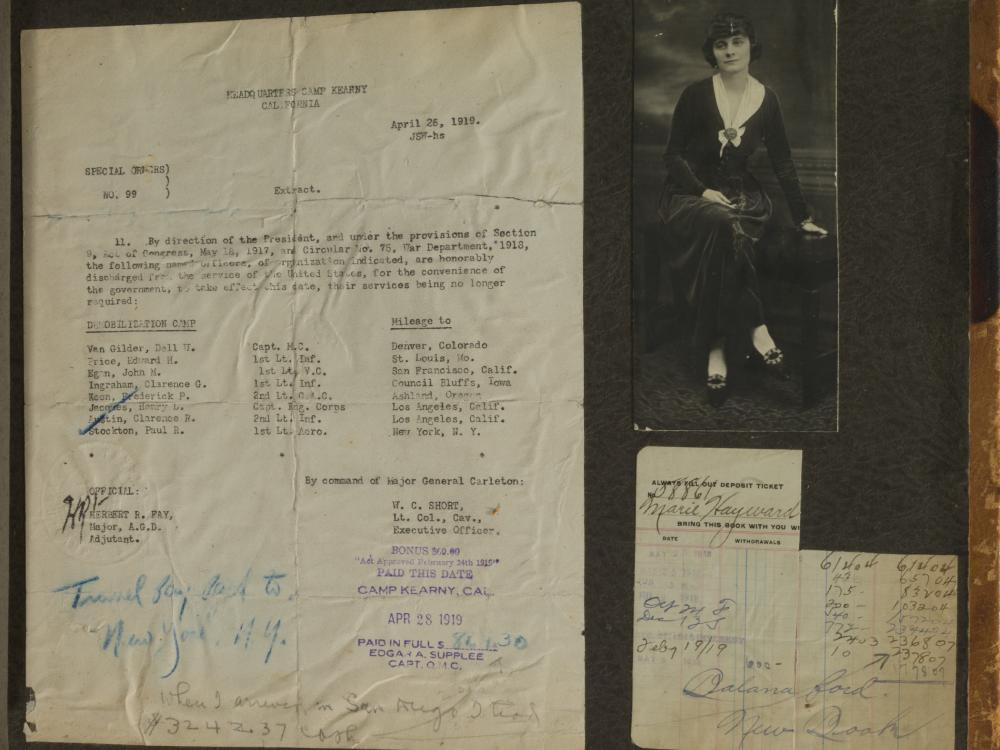 HEADQUARTERS CAMP KEARNY
CALIFORNIA
April 26, 1919.
JSW-hs
SPECIAL ORDERS)
)
NO. 99 )
Extract.
11. By direction of the President, and under the provisions of Section
9, Act of Congress, May 18, 1917, and Circular No. 75, War Department, 1918,
the following named officers, of organization indicated, are honorably
discharged from the service of the United States, for the convenience of
the government, to take effect this date, their services being no longer
required:
DEMOBILIZATION CAMP Mileage to
Van Gilder, Dell W. Capt. M.C. Denver, Colorado
Price, Edward H. 1st Lt. Inf. St. Louis, Mo.
Egan, John M. 1st Lt. V.C. San Francisco, Calif.
Ingraham, Clarence G. 1st Lt. Inf. Council Bluffs, Iowa
Koon, Frederick P. 2nd Lt. C.A.C. Ashland, Oregon
Jacques, Henry L. Capt. Eng. Corps Los Angeles, Calif.
Austin, Clarence R. 2nd Lt. Inf. Los Angeles, Calif.
Stockton, Paul R. 1st Lt. Aero. New York, N. Y.
By command of Major General Carleton:
OFFICIAL:
HERBERT R. FAY,
Major, A.G.D.
Adjutant.
W. C. SHORT,
Lt. Col., Cav.,
Executive Officer.
BONUS $60.00
"Act Approved February 24th 1919"
PAID THIS DATE
CAMP KEARNY, CAL.
APR 28 1919
PAID IN FULL $
EDGAR A. SUPPLEE
CAPT. Q.M.C.
Travel
New York. N.Y.
When I arrived in San Diego I had
$3242.37 cash
ALWAYS FILL OUT DEPOSIT TICKET
No
Marie Hayward
BRING THIS BOOK WITH YOU WI
DATE WITHDRAWALS
61404 61404
43- 65704
175- 83204
200- 103204
236807
10 237807
Feby 19/19
New Book